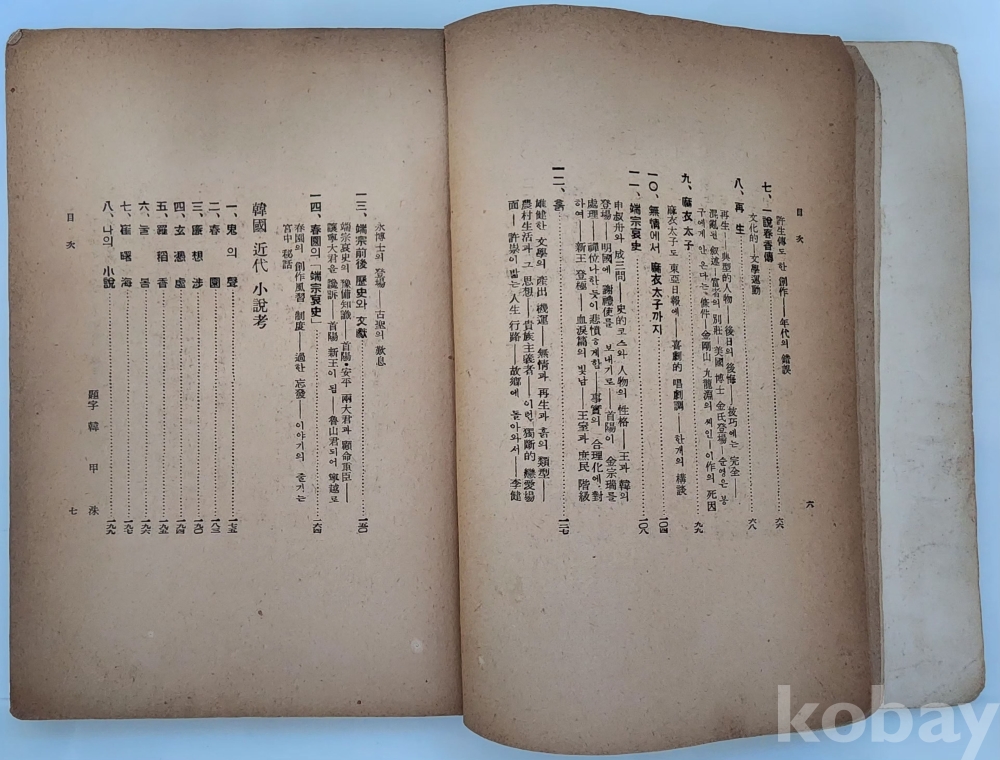 目次
許生傳도 한 創作—年代의 錯誤……六六
七、一說春香傳
文化的·文學運動……六八
八、再生
再生—典型的人物—後日의 後悔—技巧에는 完全—
混亂된 叙述—富者의 別莊—美國 博士 金氏登場—순영은 봉
구에게 안온다는 條件—金剛山 九龍淵의 씨인—이作의 死因……九九
九、麻衣太子
麻衣太子도 東亞日報에—喜劇的 唱劇調—한개의 構談……一〇四
一〇、無情에서 麻衣太子까지……一〇八
一一、端宗哀史
申叔舟와 成三問—史的코스와 人物의 性格—王과 韓의
登場—明國에 謝禮使를 보내기로—首陽이 金宗瑞를
處理—禪位나한듯이 悲憤하게함—事實의 合理化에 對
하여—新王 登極—血淚篇의 빛남—王室과 庶民 階級……一二七
一二、흙
雄健한 文學의 産出 機運—無情과 再生과 흙의 類型—
農村生活과 그 思想—貴族主義者—이런 獨斷的 戀愛場
面—許崇이 밟는 人生 行路—故鄕에 돌아와서—李健
六
永博士의 登場—古聖의 歎息……一五〇
一三、端宗前後 歷史와 文獻
端宗哀史의 豫備知識—首陽·安平 兩大君과 顧命重臣—
讓寧大君을 讒訴—首陽 新王이 됨—魯山君되어 寧越로……一六四
一四、春園의「端宗哀史」
春園의 創作風習 制度—過한 忘發—이야기의 줄기는
宮中 秘話
韓國 近代 小說考
一、鬼의 聲……一七五
二、春園……一八三
三、廉想涉……一九〇
四、玄憑虛……一九四
五、羅稻香……一九五
六、늘봄……一九六
七、崔曙海……一九七
八、나의 小說……一九九
題字 韓甲洙
目次
七
kobay